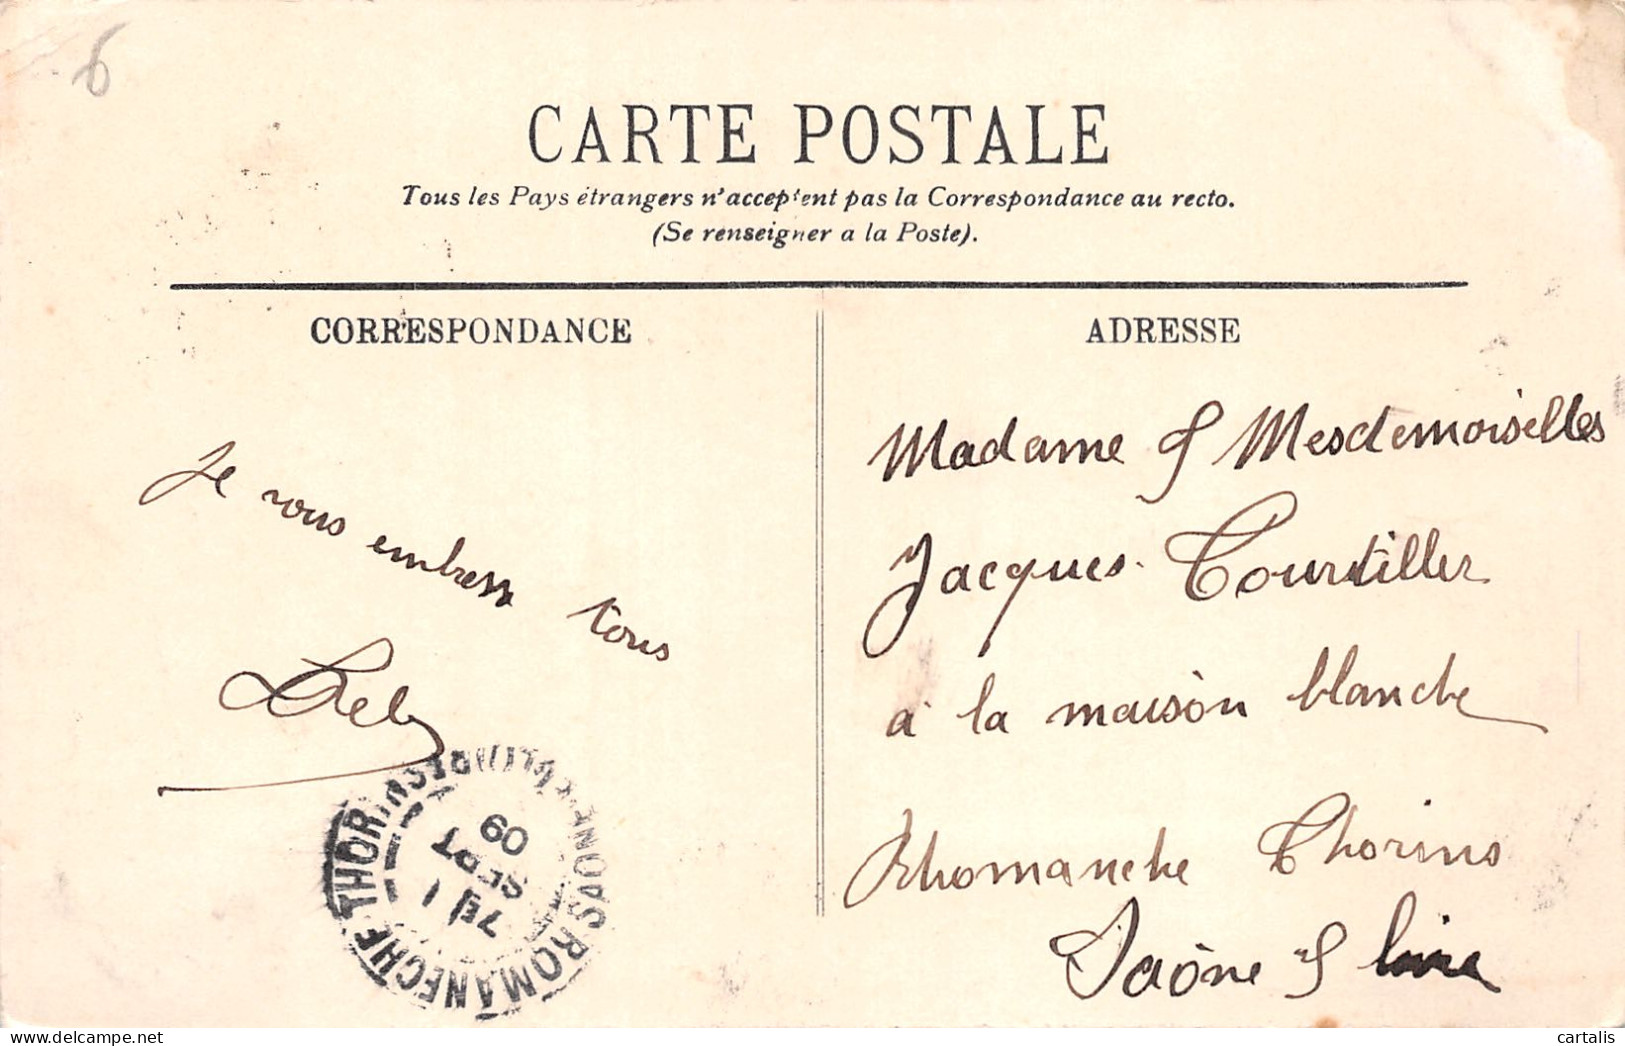 6
CARTE POSTALE
Tous les Pays étrangers n'acceptent pas la Correspondance au recto.
(Se renseigner a la Poste).
CORRESPONDANCE
Je vous embrasse
tous
ADRESSE
Madame & Mesdemoiselles
Jacques Tourtiller
à la maison blanche
Rhomanche Thorins
Saône & Loire
ROMANÈCHE-THORINS
SAÔNE-ET-LOIRE
7 SEPT
09
cartalis